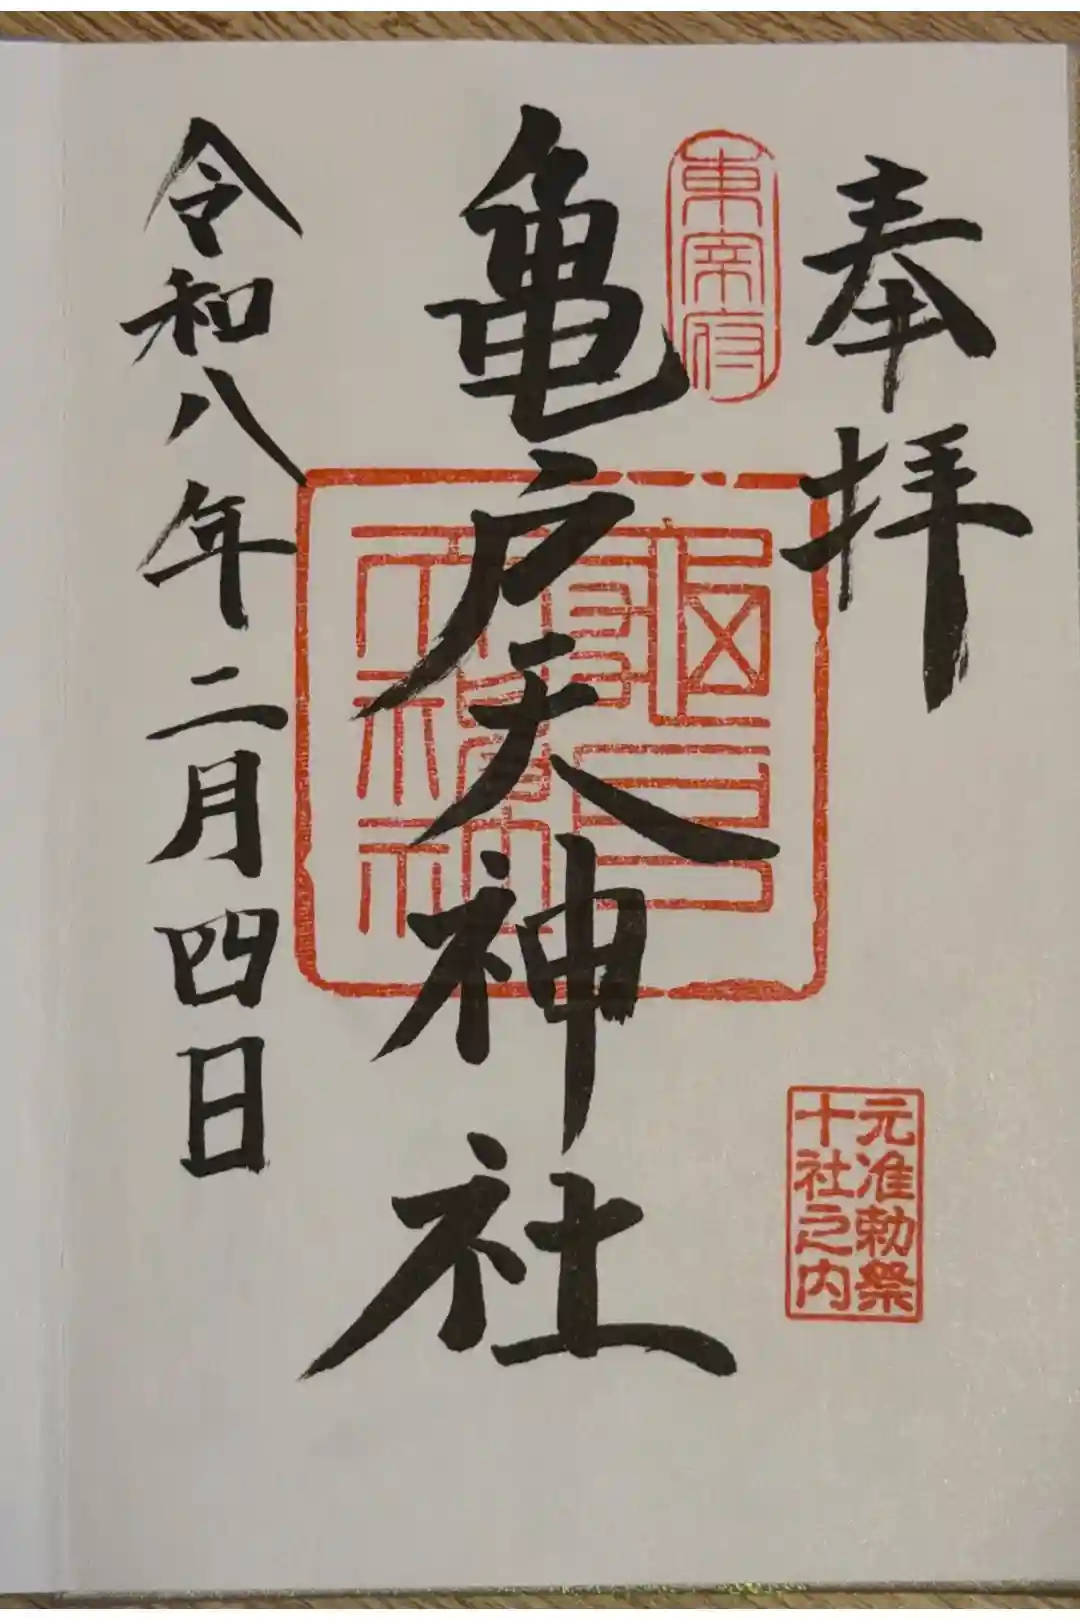 奉拝
東宰府
元准勅祭
十社之内
亀戸天神社
令和八年二月四日